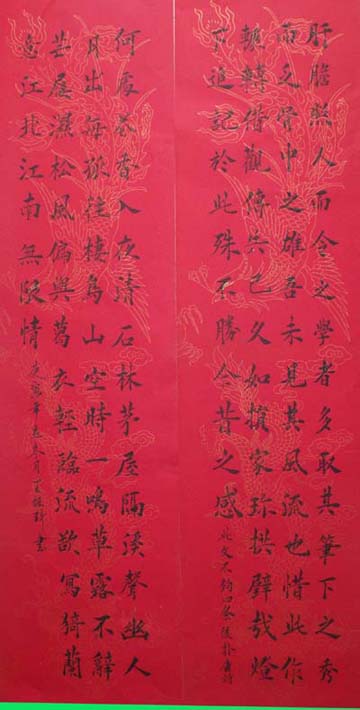 肝膽照人而今之學者多取其筆下之秀
而乏骨中之雄吾未見其風流也惜此作
輾轉借觀傳失已久如擯家珍拱璧哉燈
下追記於此殊不勝今昔之感
何處芬香入夜清石林茅屋隔溪聲幽人
月出每孤往棲鳥山空時一鳴草露不辭
芒屨濕松風偏與葛衣輕臨流欲寫猗蘭
意江北江南無限情